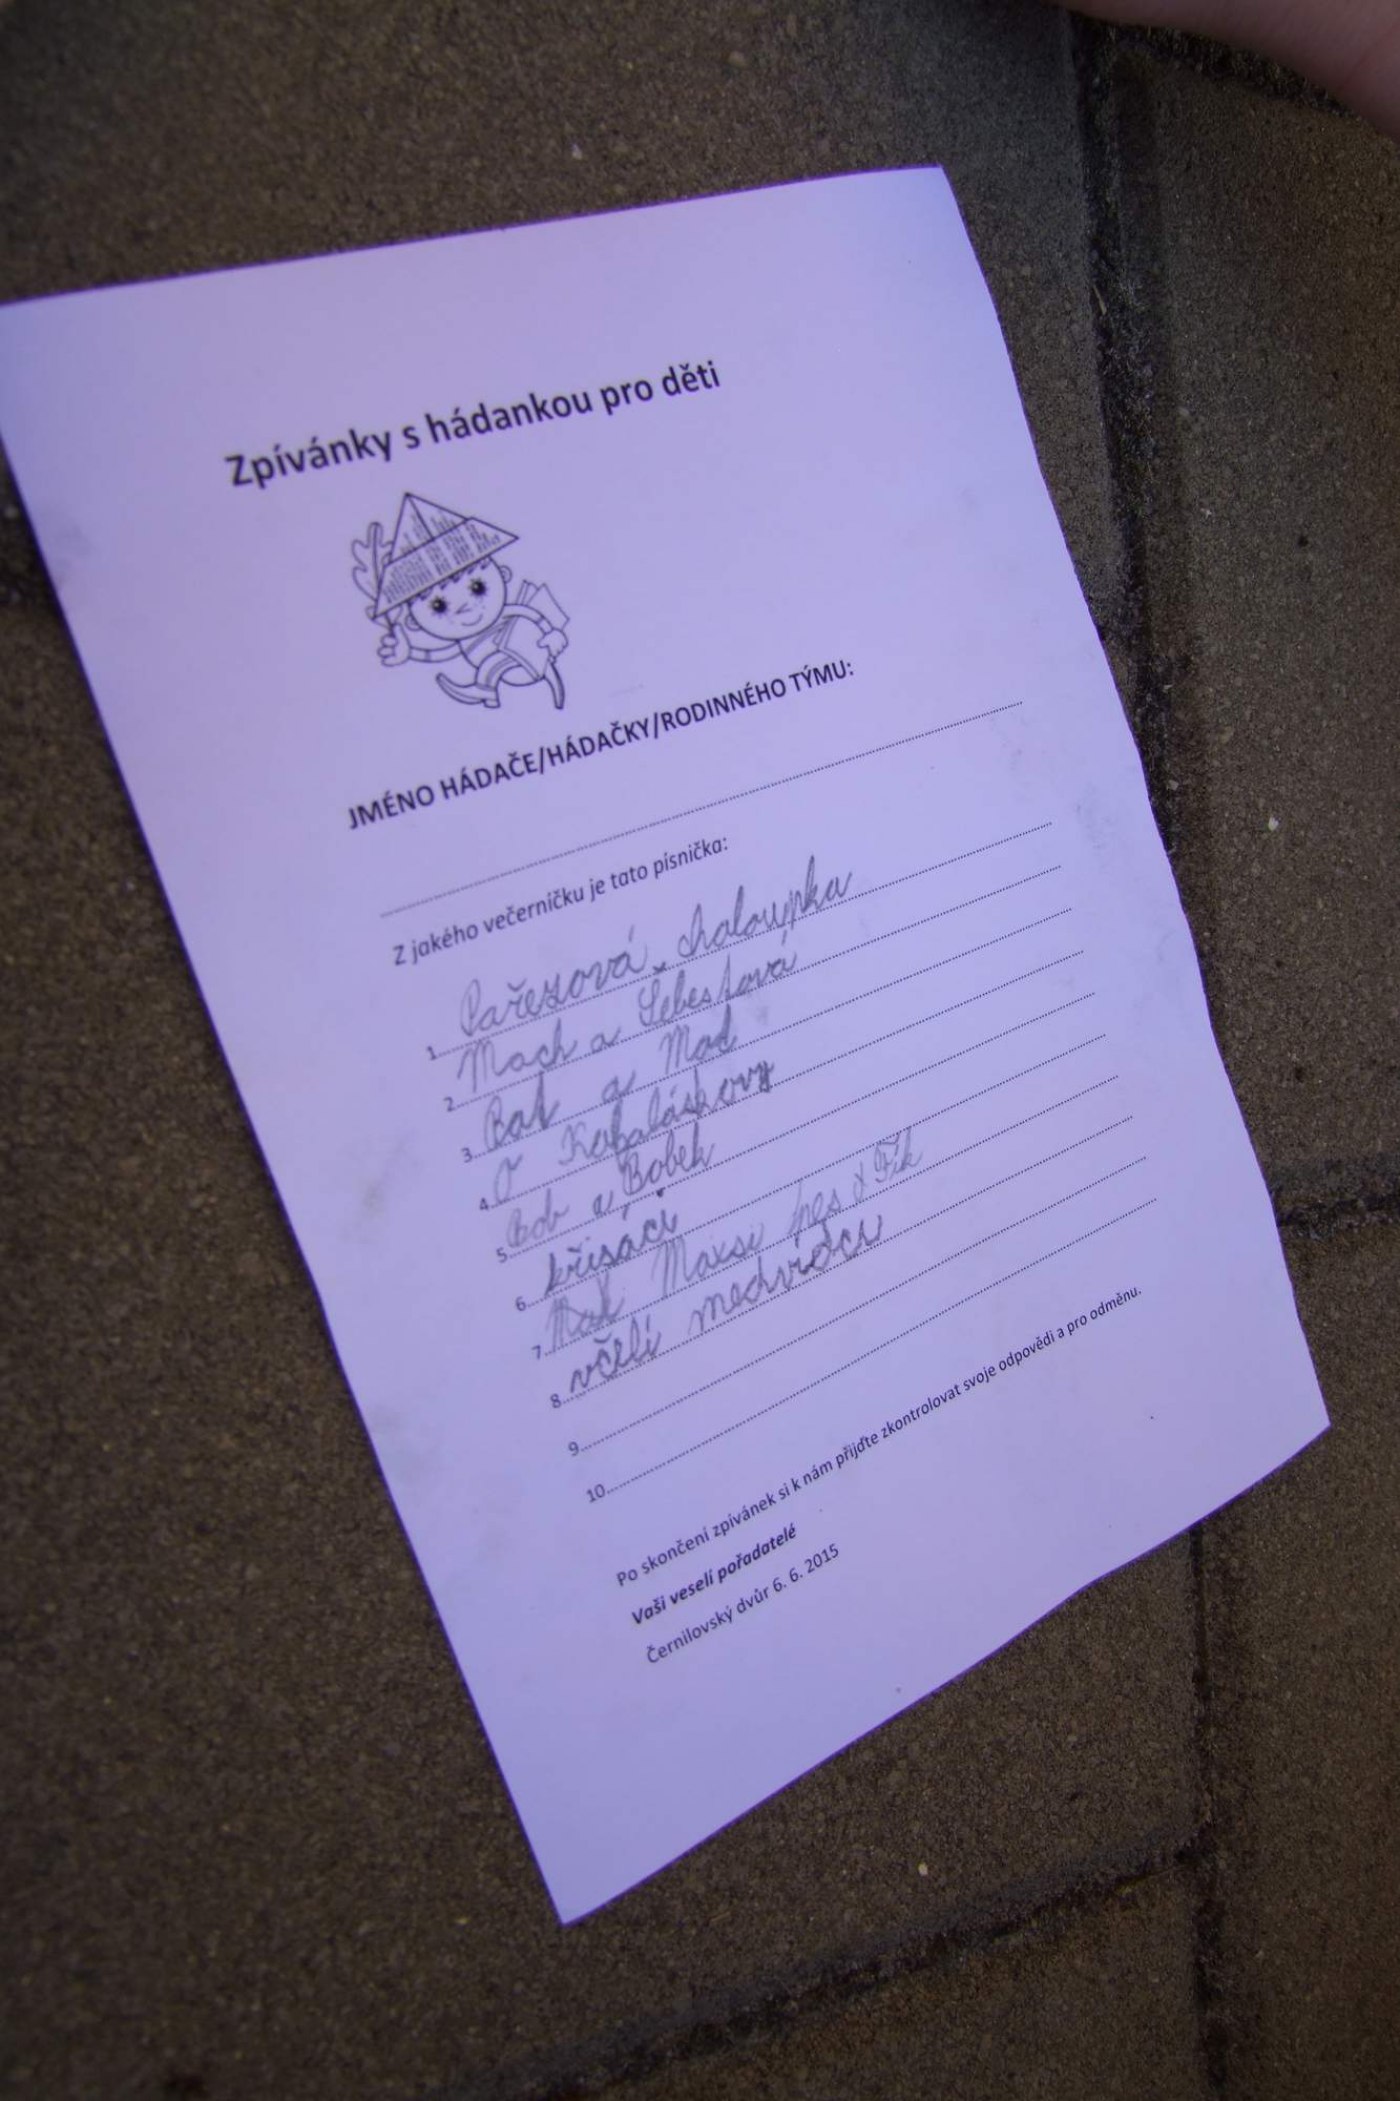 Zpívánky s hádankou pro děti
JMÉNO HÁDAČE/HÁDAČKY/RODINNÉHO TÝMU:
Z jakého večerníčku je tato písnička:
1 Pařezová chaloupka
2 Mach a Šebestová
3 Pat a Mat
4 O Kubaláskovy
5 Bob a Bobek
6 křisáci
7 Mak Maxsi pes Fík
8 včelí medvíďci
9
10
Po skončení zpívánek si k nám přijďte zkontrolovat svoje odpovědi a pro odměnu.
Vaši veselí pořadatelé
Černilovský dvůr 6. 6. 2015